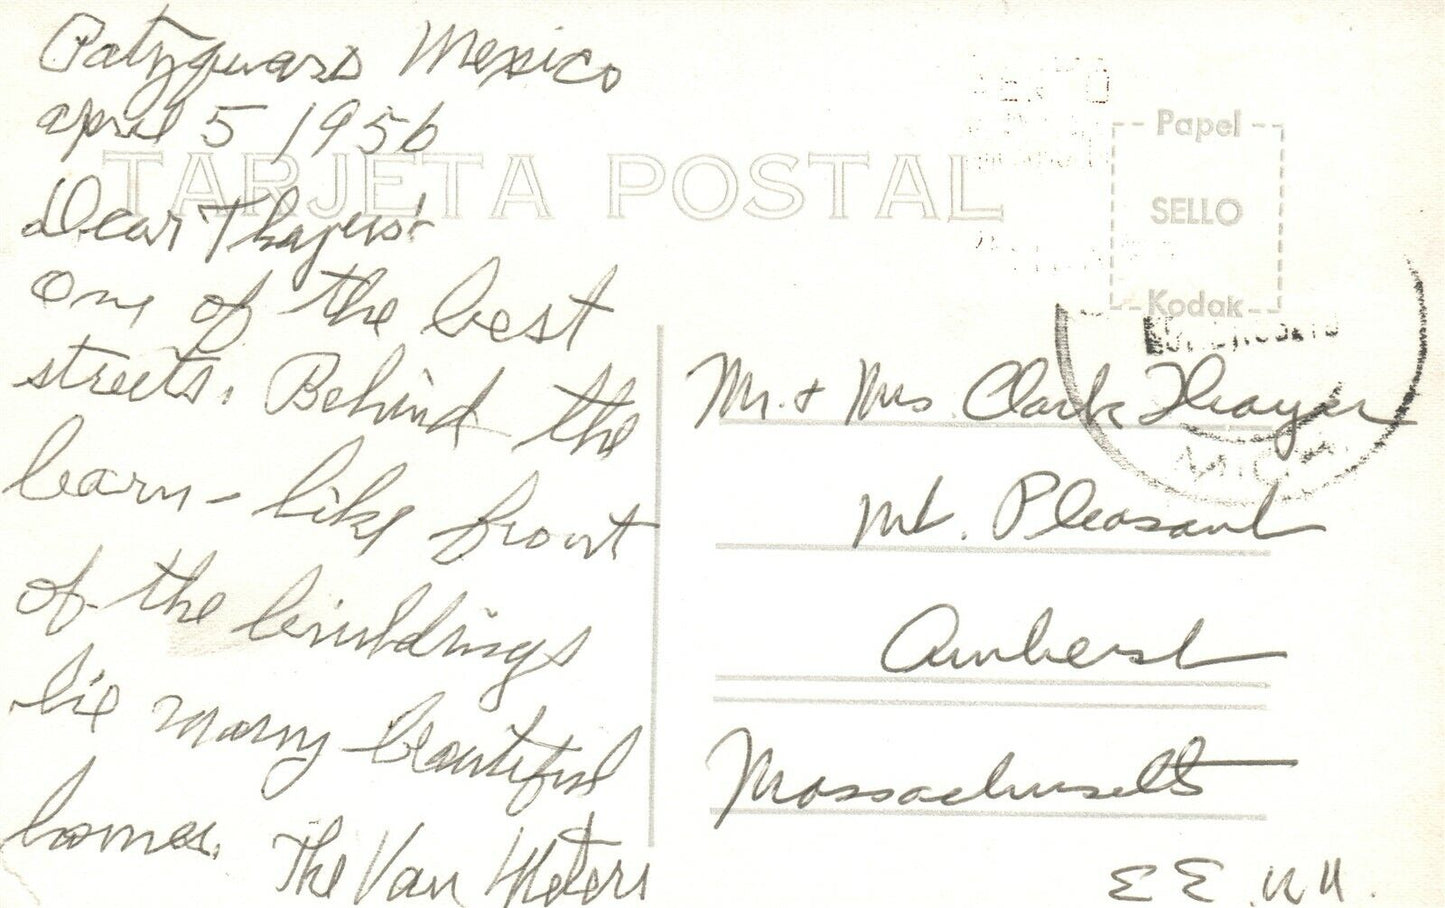 Patzquaro Mexico
april 5 1956
TARJETA POSTAL
Dear Thayers:
One of the best
streets. Behind the
barn-like front
of the buildings
lie many beautiful
homes.
The Van Meters
Papel
SELLO
Kodak
Mr. + Mrs. Clark Thayer
Mt. Pleasant
Amherst
Massachusetts
EE.UU.